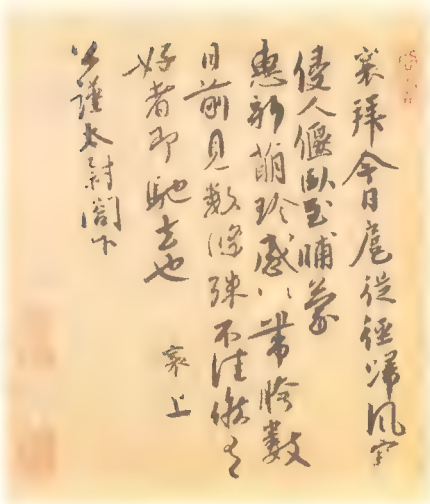 襄拜今日扈從徑歸風寒
侵人偃臥至晡蒙
惠新萌珍感々帶胯數
日前見數條殊不佳候有
好者即馳去也 襄上
公謹太尉閣下